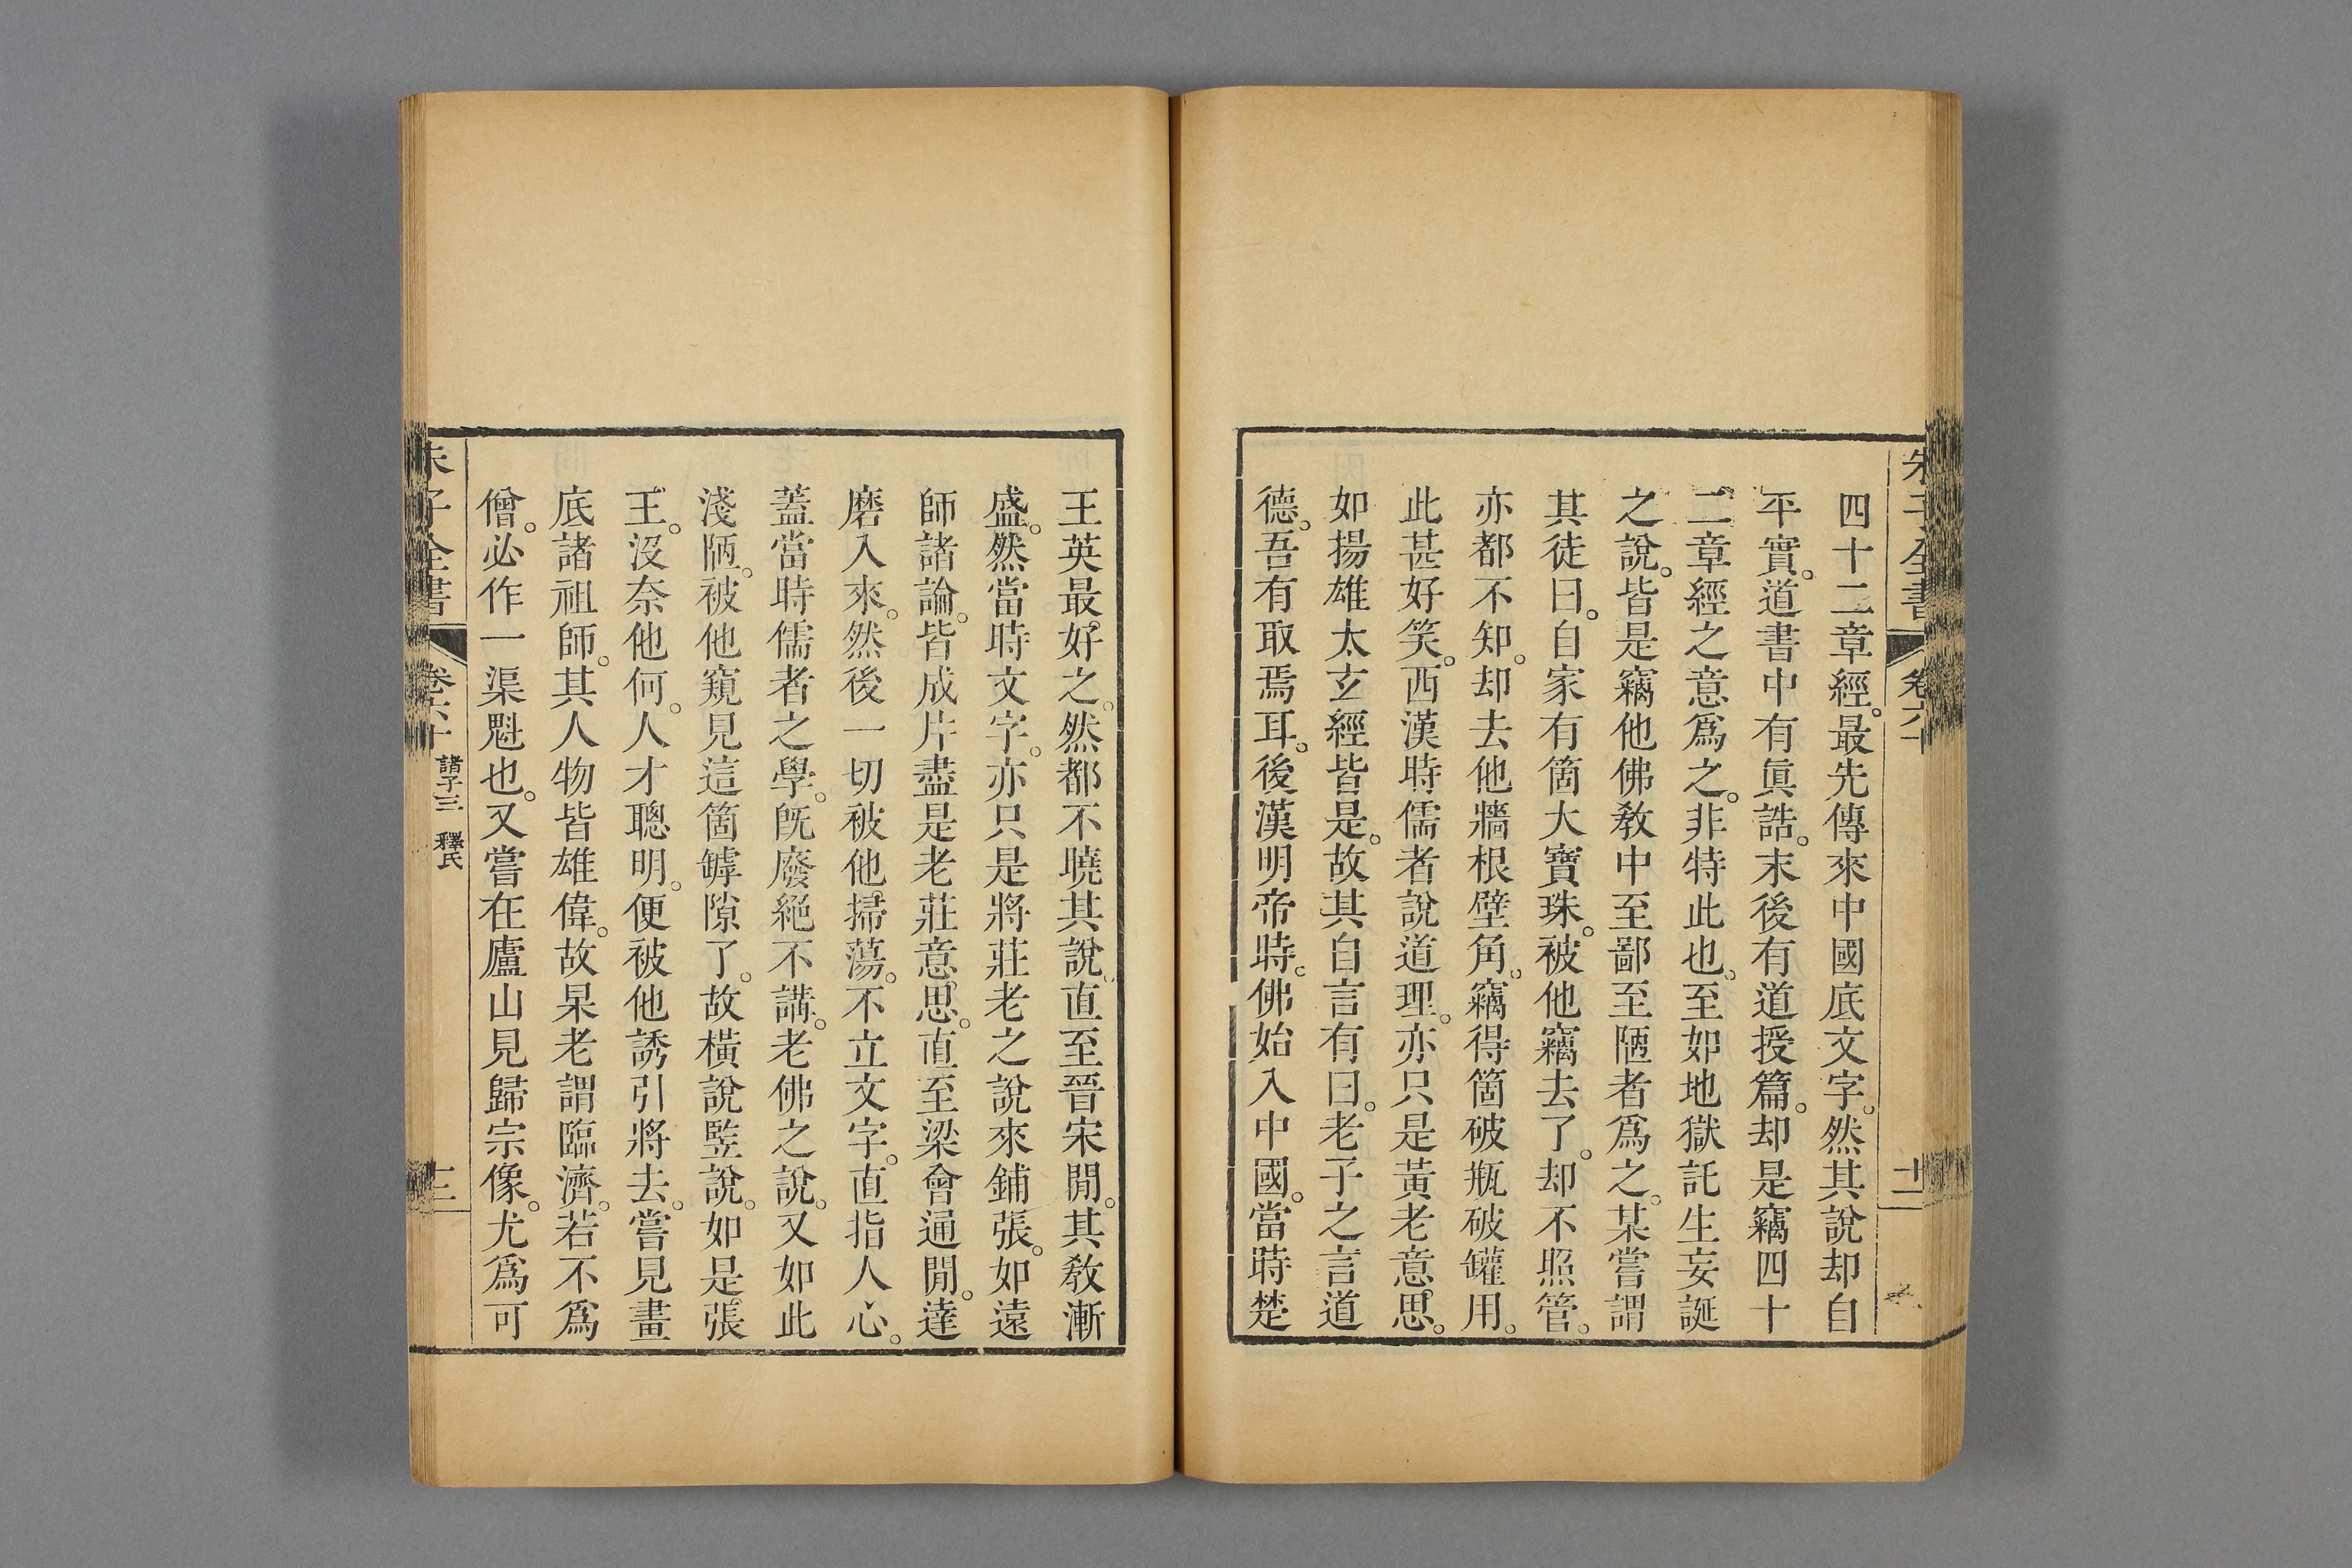 朱子全書
卷六十
十二
四十二章經。最先傳來中國底文字。然其說却自
平實。道書中有眞誥。末後有道授篇。却是竊四十
二章經之意爲之。非特此也。至如地獄託生妄誕
之說。皆是竊他佛教中至鄙至陋者爲之。某嘗謂
其徒曰。自家有箇大寶珠。被他竊去了。却不照管。
亦都不知。却去他牆根壁角。竊得箇破瓶破罐用。
此甚好笑。西漢時儒者說道理。亦只是黃老意思。
如揚雄太玄經皆是。故其自言有曰。老子之言道
德。吾有取焉耳。後漢明帝時。佛始入中國。當時楚
王英最好之。然都不曉其說。直至晉宋閒。其教漸
盛。然當時文字。亦只是將莊老之說來鋪張。如遠
師諸論。皆成片盡是老莊意思。直至梁會通閒。達
磨入來。然後一切被他掃蕩。不立文字。直指人心。
蓋當時儒者之學。旣廢絕不講。老佛之說。又如此
淺陋。被他窺見這箇罅隙了。故橫說豎說。如是張
王。沒奈他何。人才聰明。便被他誘引將去。嘗見畫
底諸祖師。其人物皆雄偉。故杲老謂臨濟。若不爲
僧。必作一渠魁也。又嘗在廬山見歸宗像。尤爲可
朱子全書
卷六十
諸子三 釋氏